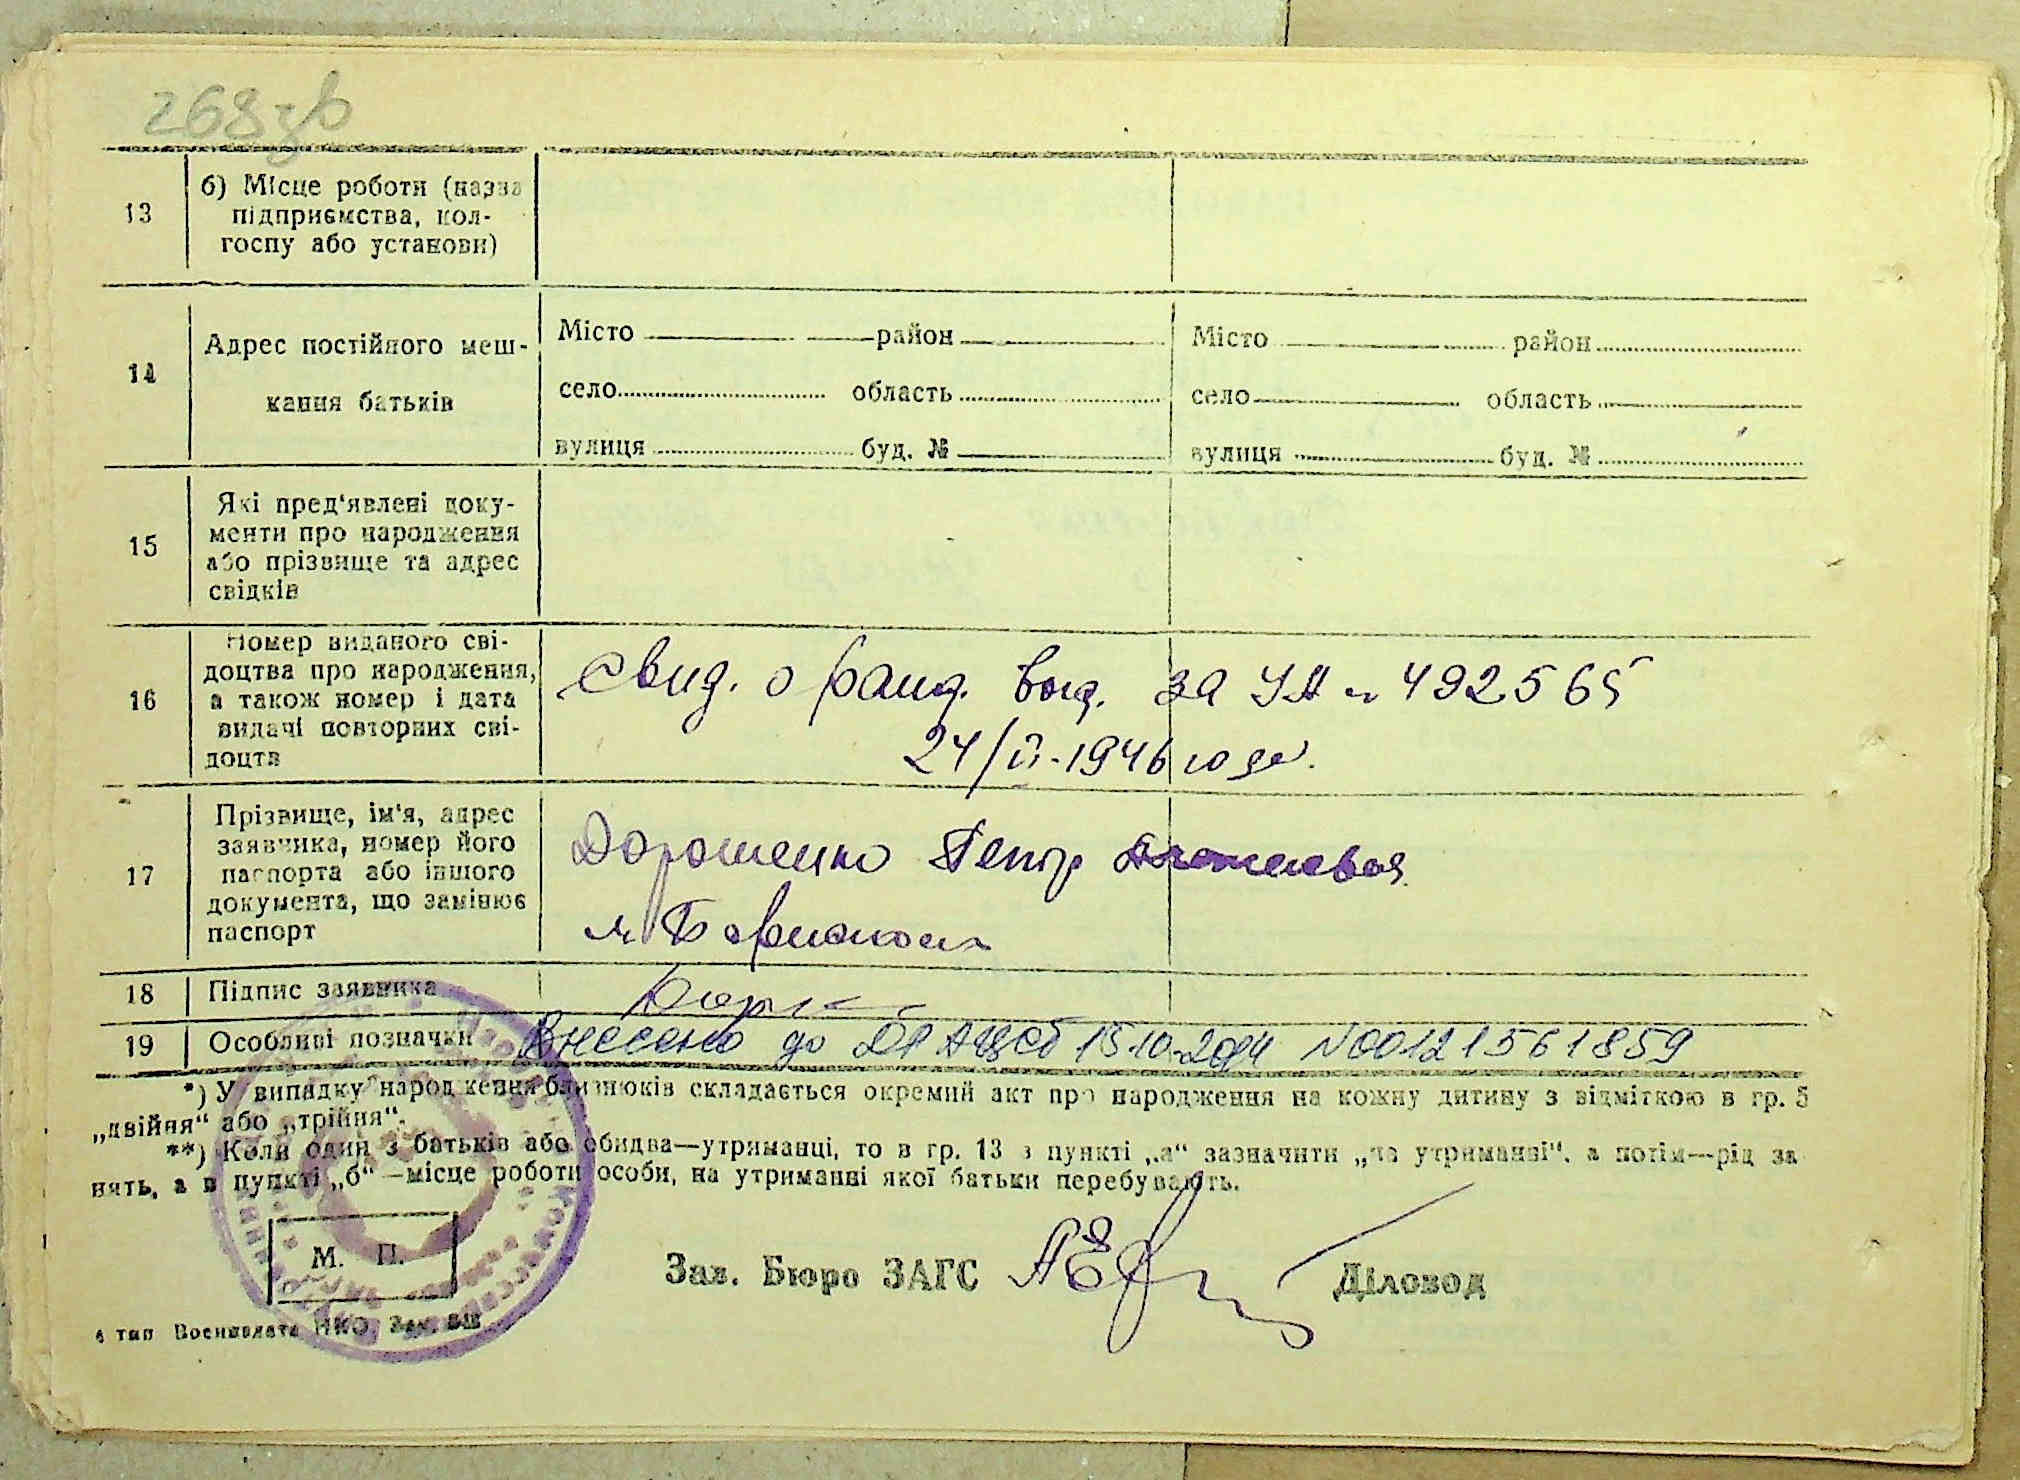 268зв
13
б) Місце роботи (назва
підприємства, кол-
госпу або установи)
14
Адрес постійного меш-
кання батьків
Місто район
село область
вулиця буд. №
Місто район
село область
вулиця буд. №
15
Які пред'явлені доку-
менти про народження
або прізвище та адрес
свідків
16
Номер виданого сві-
доцтва про народження,
а також номер і дата
видачі повторних сві-
доцтв
Свид. о рожд. выд. за УА № 492565
24/II-1946 года.
17
Прізвище, ім'я, адрес
заявника, номер його
паспорта або іншого
документа, що замінює
паспорт
Дорошенко Петр
м.
18
Підпис заявника
19
Особливі позначки
Внесено до 15.10.2014 N00121561859
*) У випадку народження близнюків складається окремий акт про народження на кожну дитину з відміткою в гр. 5
„двійня“ або „трійня“.
**) Коли один з батьків або обидва—утриманці, то в гр. 13 з пункті „а“ зазначити „на утриманні“, а потім—рід за
нять, а в пункті „б“—місце роботи особи, на утриманні якої батьки перебувають.
М. П.
Зав. Бюро ЗАГС
Діловод
4 тип Воениздата НКО, Зак.